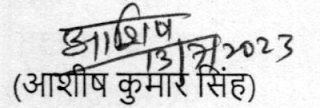 आशिष
2023
(आशीष कुमार सिंह)